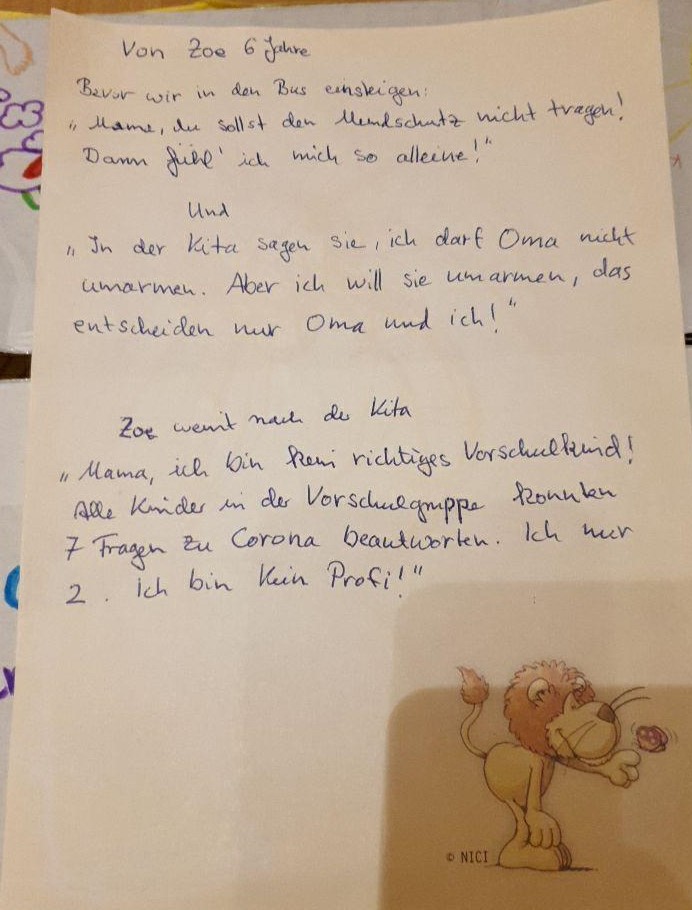 Von Zoe 6 Jahre
Bevor wir in den Bus einsteigen:
„Mama, du sollst den Mundschutz nicht tragen!
Dann fühl' ich mich so alleine!"
Und
„In der Kita sagen sie, ich darf Oma nicht
umarmen. Aber ich will sie umarmen, das
entscheiden nur Oma und ich!"
Zoe weint nach der Kita
„Mama, ich bin kein richtiges Vorschulkind!
Alle Kinder in der Vorschulgruppe konnten
7 Fragen zu Corona beantworten. Ich nur
2. ich bin kein Profi!"
© NICI